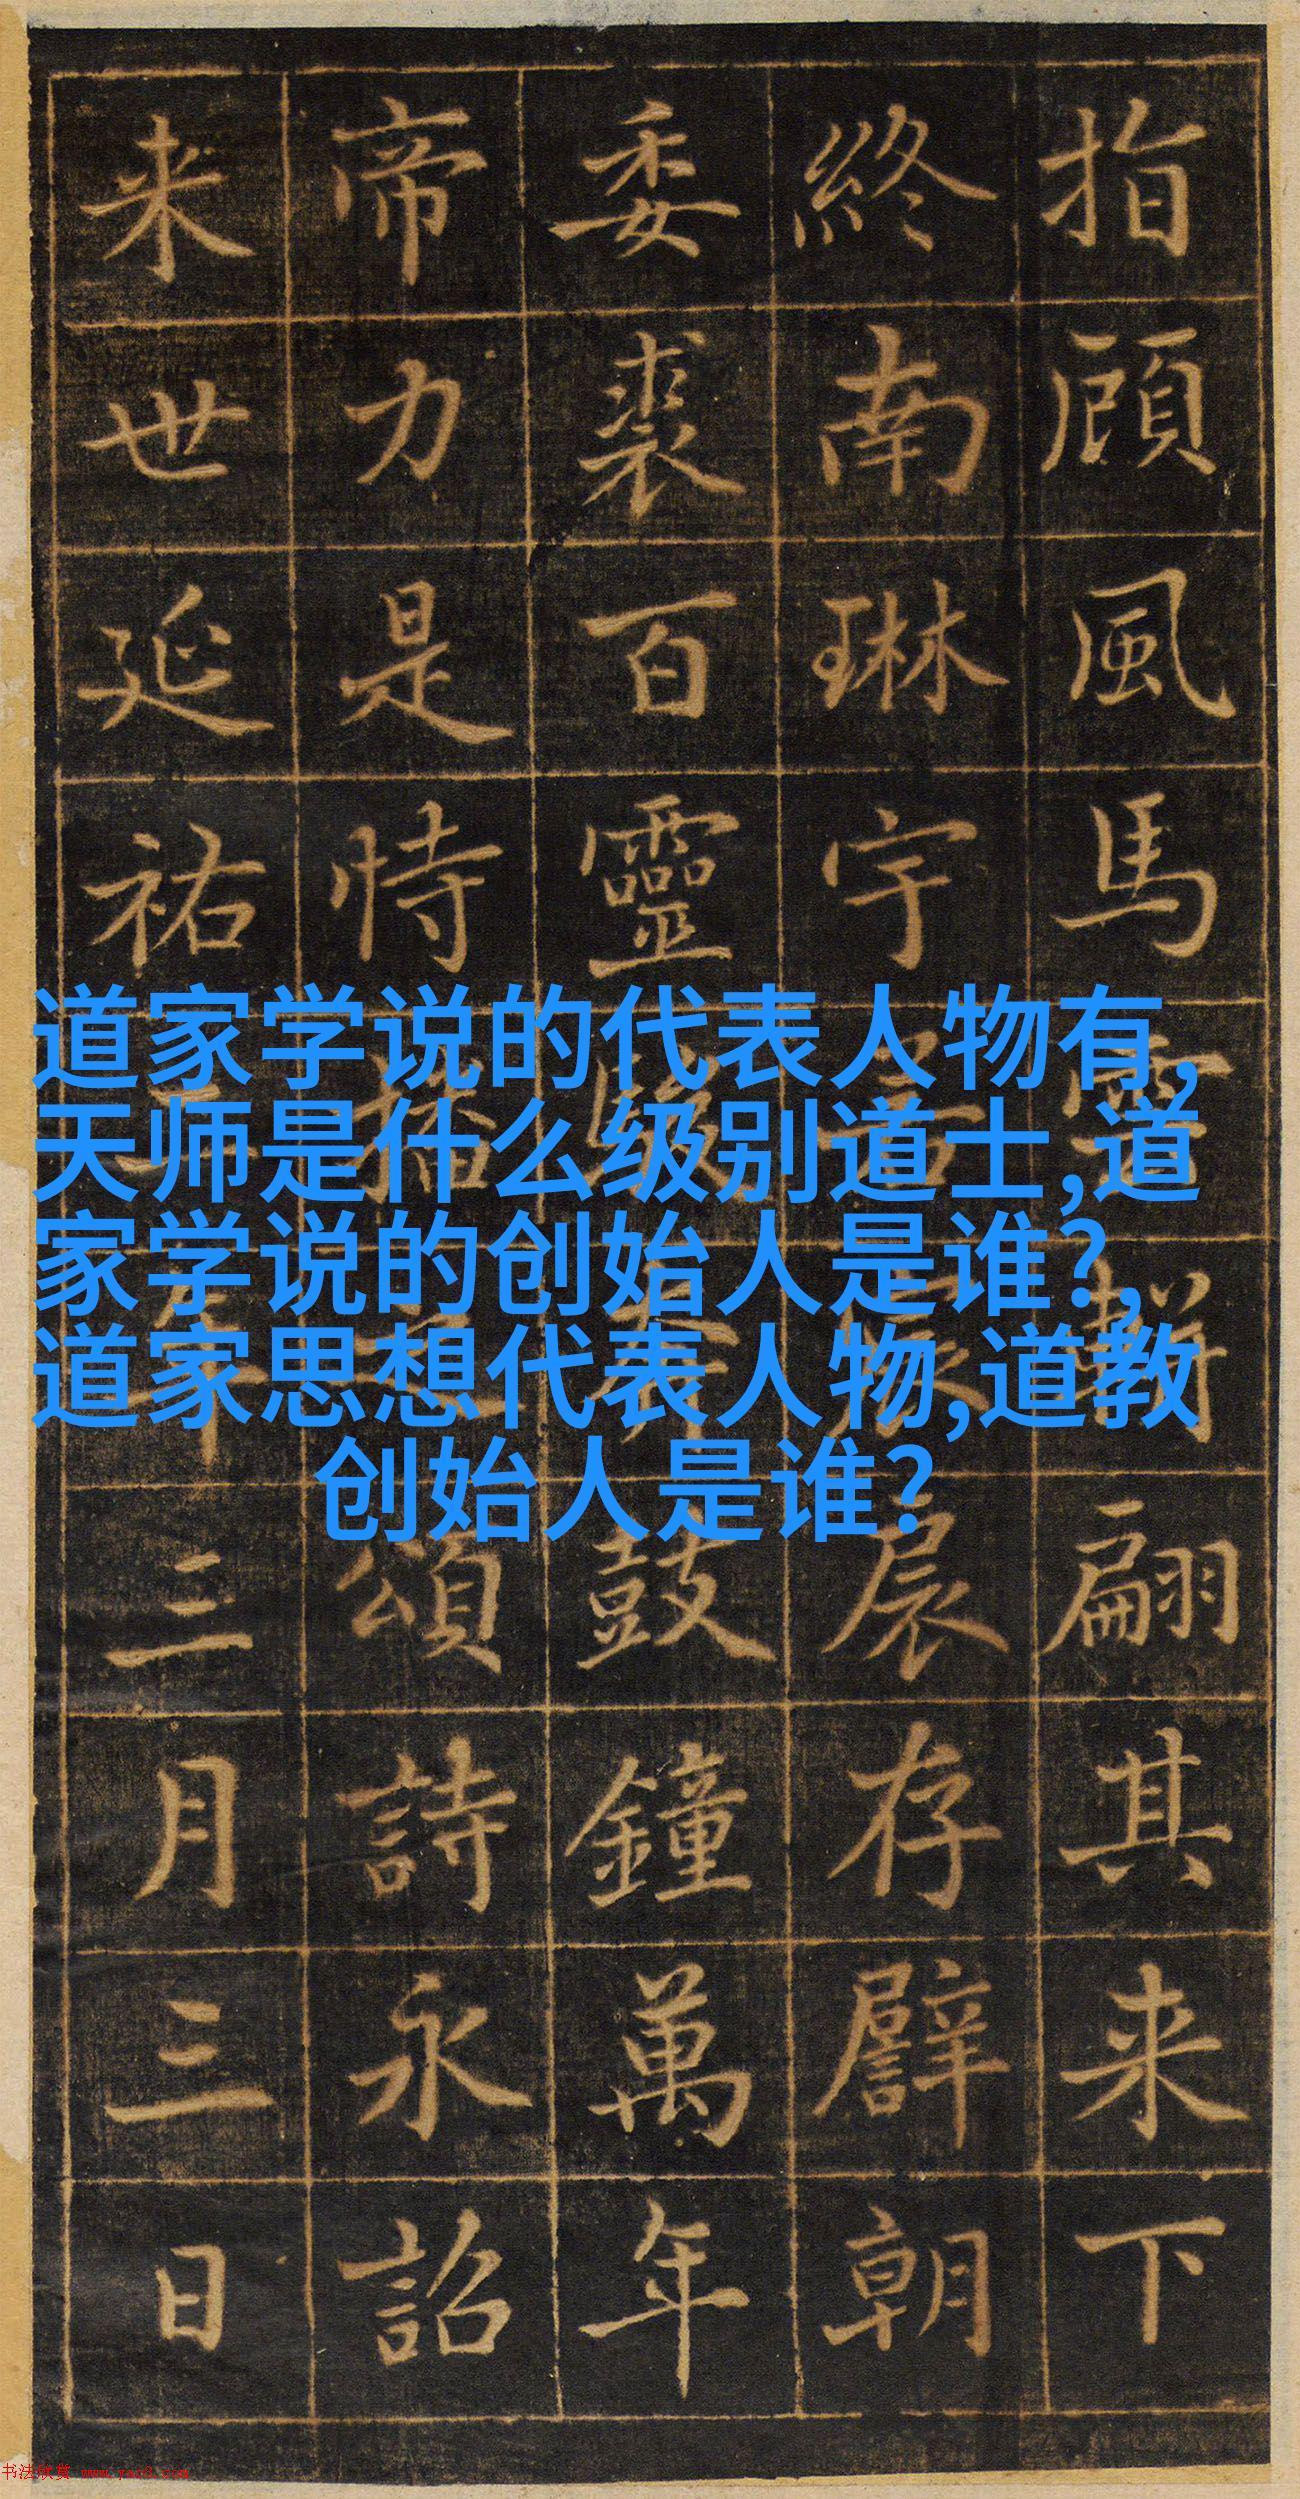 指顧風馬雲翩其来下
終南琳宇存譬朝
委裘百靈鼓鐘萬年
帝力是恃播頌詩永詔
来世延祐五年三月三日
道家学说的代表人物有,
天师是什么级别道士,道
家学说的创始人是谁?,
道家思想代表人物,道教
创始人是谁?
书法欣赏 www.yac8.com